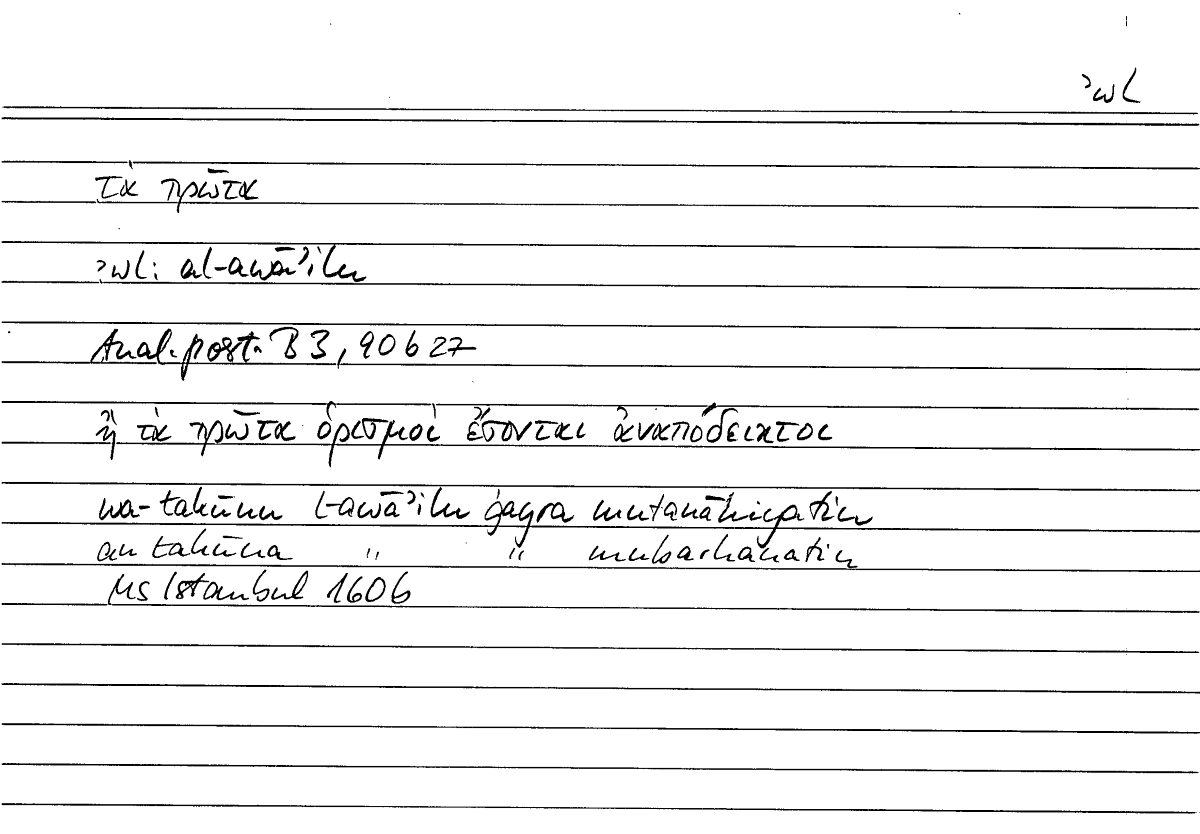 ʾwl
τὰ πρῶτα
ʾwl: al-awāʾilu
Anal. post. B 3, 90 b 27
ἢ τὰ πρῶτα ὁρισμοὶ ἔσονται ἀναπόδεικτοι
wa-takūnu l-awāʾilu ġayra mutanāhiyatin
an takūna " " mubarhanatin
Ms Istanbul 160b